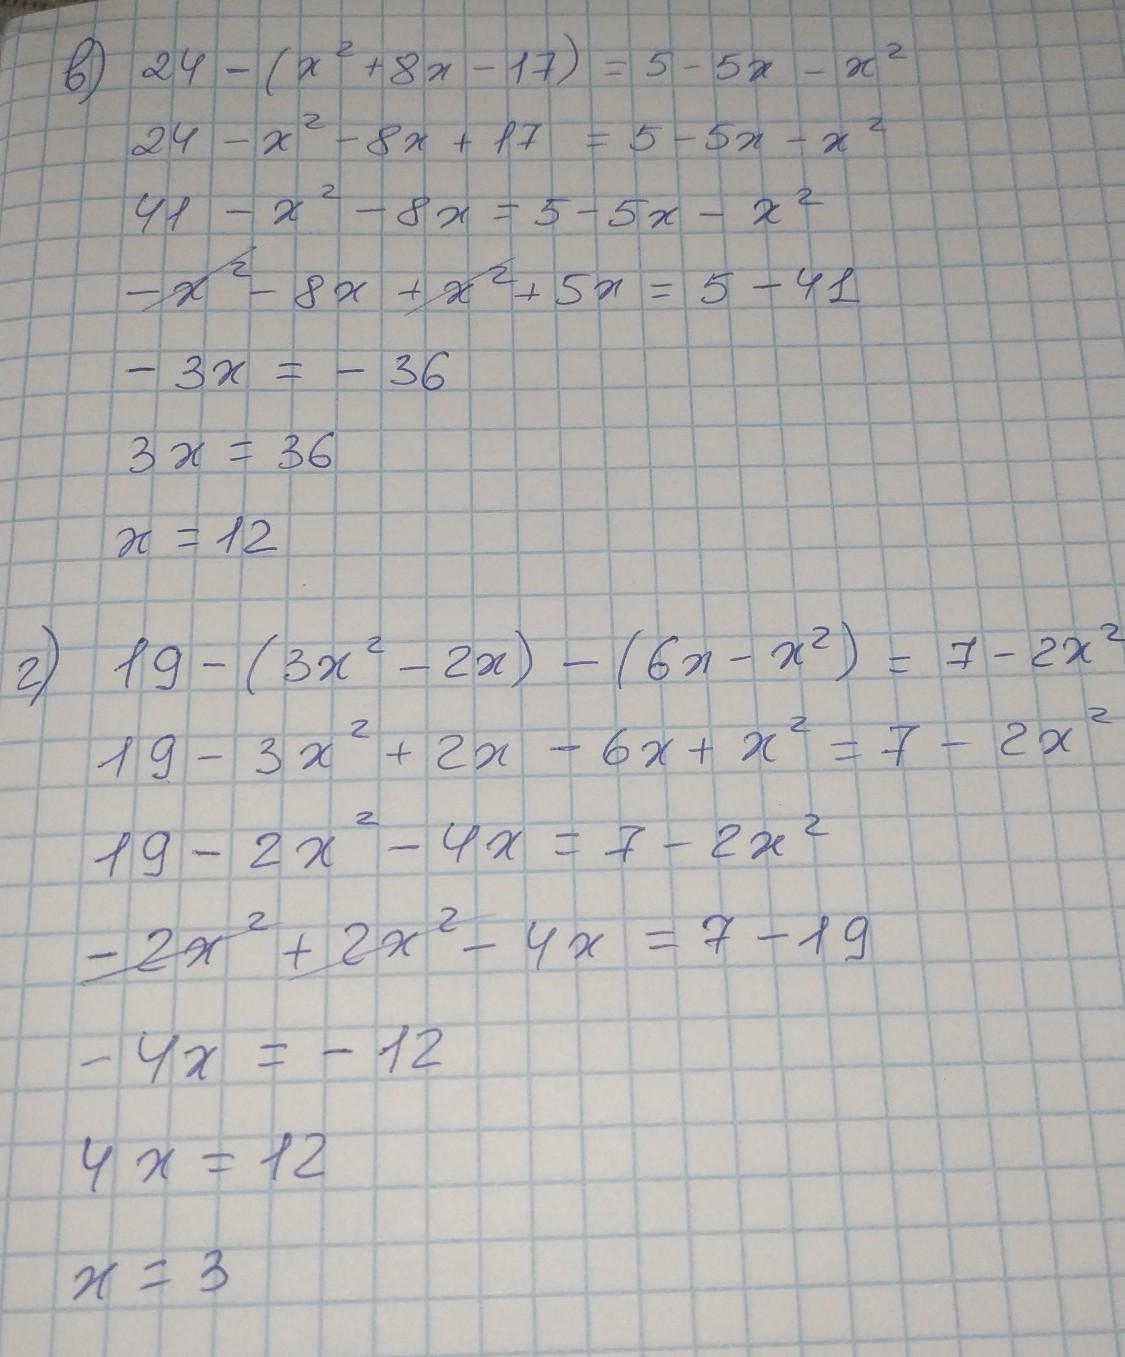 в) 24 - (x² + 8x - 17) = 5 - 5x - x²
24 - x² - 8x + 17 = 5 - 5x - x²
41 - x² - 8x = 5 - 5x - x²
- x² - 8x + x² + 5x = 5 - 41
- 3x = - 36
3x = 36
x = 12
г) 19 - (3x² - 2x) - (6x - x²) = 7 - 2x²
19 - 3x² + 2x - 6x + x² = 7 - 2x²
19 - 2x² - 4x = 7 - 2x²
- 2x² + 2x² - 4x = 7 - 19
- 4x = - 12
4x = 12
x = 3